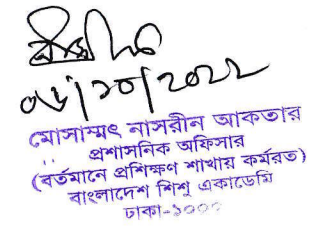 মোসাম্মৎ নাসরীন আকতার
প্রশাসনিক অফিসার
(বর্তমানে প্রশিক্ষণ শাখায় কর্মরত)
বাংলাদেশ শিশু একাডেমি
ঢাকা-১০০০